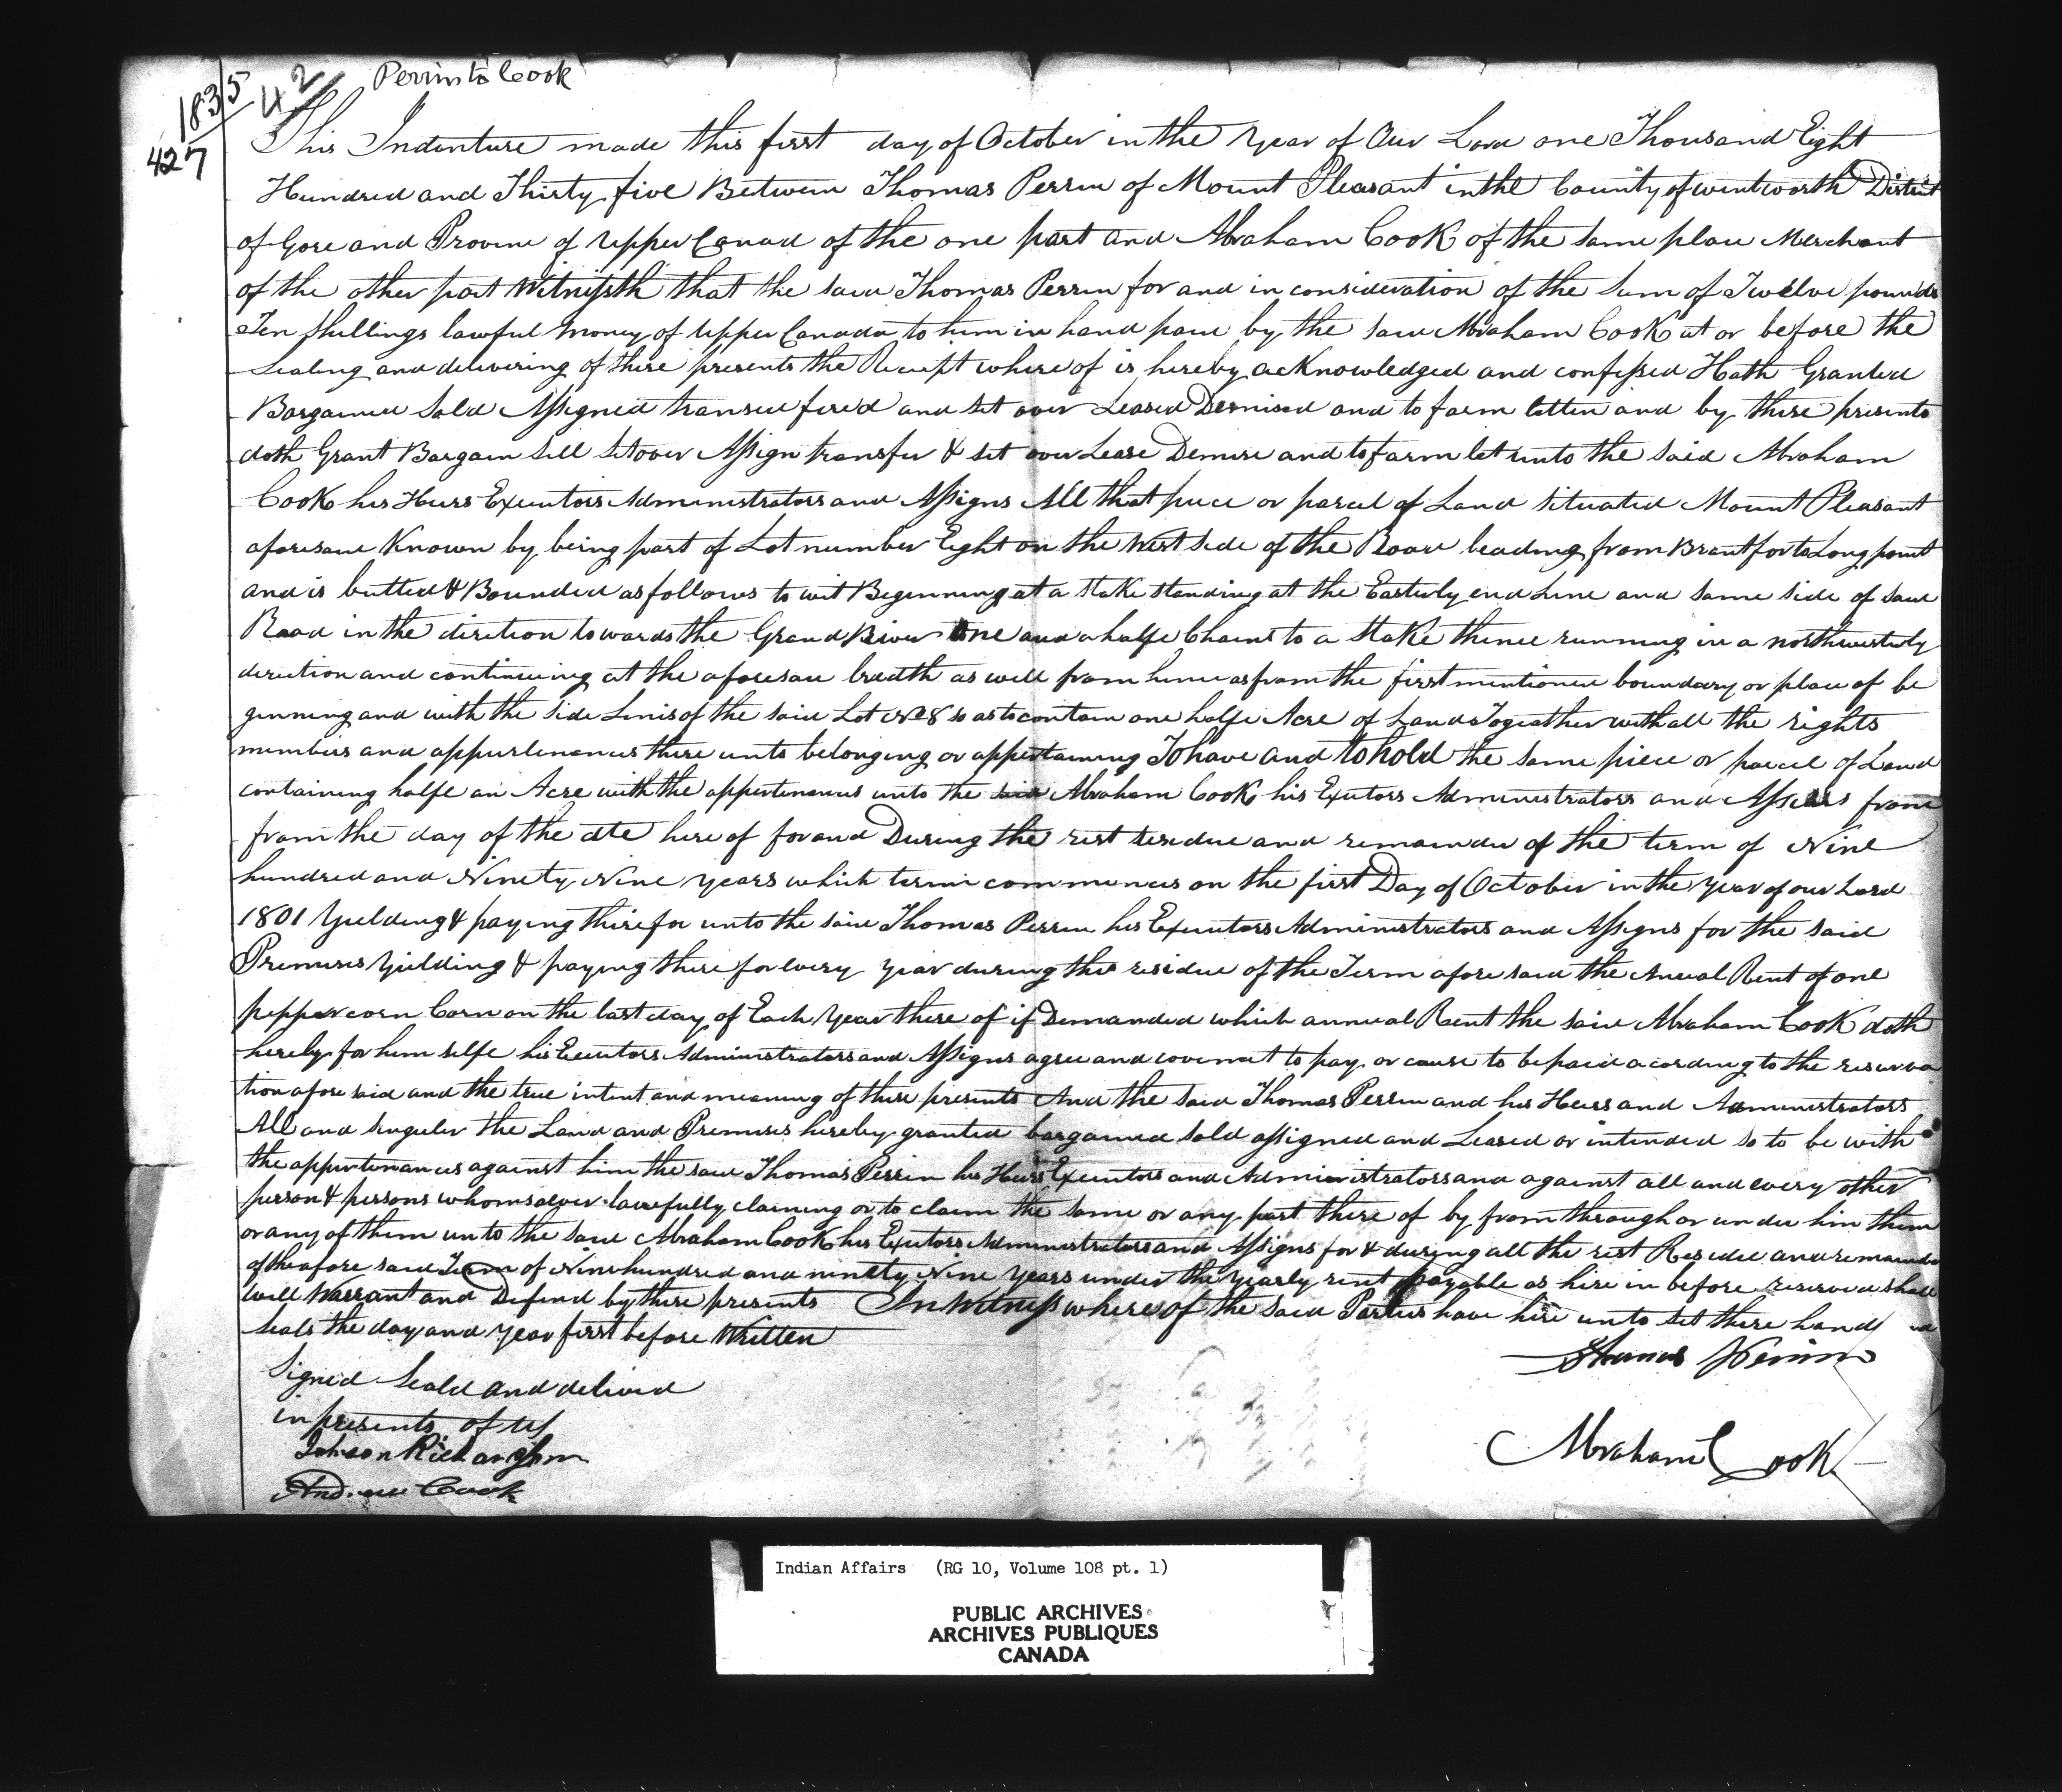 1835
42
Perrin to Cook
427
This Indenture made this first day of October in the Year of Our Lord one Thousand Eight
Hundred and Thirty five Between Thomas Perrin of Mount Pleasant in the County of wentworth District
of Gore and Provine of Upper Canad of the one part and Abraham Cook of the same place Merchant
of the other part Witnisseth that the said Thomas Perrin for and in consideration of the Sum of Twelve pounds
Ten Shillings lawful money of Upper Canada to him in hand paid by the said Abraham Cook at or before the
Sealing and delivering of these presents the Receipt where of is hereby acknowledged and confessed Hath Granted
Bargained Sold Assigned transed fered and set over Leased Demised and to farm letten and by these presents
doth Grant Bargain Sell set over Assign transfer & set over Lease Demise and to farm let unto the said Abraham
Cook his Heirs Executors Administrators and Assigns All that piece or parcel of Land situated Mount Pleasant
aforesaid Known by being part of Lot number Eight on the West side of the Road leading from Brantfor to Long point
and is butted & Bounded as follows to wit Beginning at a stake standing at the Easterly end Line and same side of said
Road in the dirction towards the Grand River One and a halfe Chains to a Stake thence running in a northwesterly
direction and continuing at the aforesaid bredth as well from hence as from the first mentioned boundary or place of be
ginning and with the side Lines of the said Lot No 8 so as to contain one halfe Acre of Lands Togeather with all the rights
members and appurtenances there unto belonging or appertaining To have and to hold the same piece or parcel of Land
containing halfe an Acre with the appertenances unto the said Abraham Cook his Exutors Administrators and from
from the day of the dte here of for and During the rest residue and remainder of the term of Nine
hundred and Ninety Nine years which term commences on the first Day of October in the Year of our Lord
1801 Yielding & paying therefor unto the said Thomas Perrin his Executors Administrators and Assigns for the said
Premises Yielding & paying there for every year during the residue of the Term afore said the Anual Rent of one
pepper corn Corn on the last day of Each Year there of if Demanded which annual Rent the said Abraham Cook doth
hereby for him selfe his Executors Administrators and Assigns agree and covenat to pay or cause to be paid acording to the reserva
tion afore said and the true intent and meaning of these presents And the said Thomas Perrin and his Heirs and Administrators
All and singuler the Land and Premises hereby granted bargained sold assigned and Leased or intended so to be with
the appertenances against him the said Thomas Perrin his Heirs Executors and Administrators and against all and every other
person & persons whomsoever lawefully claiming or to claim the same or any part there of by from through or under him them
or any of them unto the said Abraham Cook his Exutors Administrators and Assigns for & during all the rest Residue and remainder
of the afore said Term of Nine hundred and ninety Nine Years under the yearly rent payable as here in before reserved shall
will Warrant and Defend by these presents In Witness where of the said Parties have here unto set there hands and
seals the day and year first before Written
Signed Seald and delived
in presents of us
Thomas Perrin
Abraham Cook
Andrew Cook
Indian Affairs (RG 10, Volume 108 pt. 1)
PUBLIC ARCHIVES
ARCHIVES PUBLIQUES
CANADA